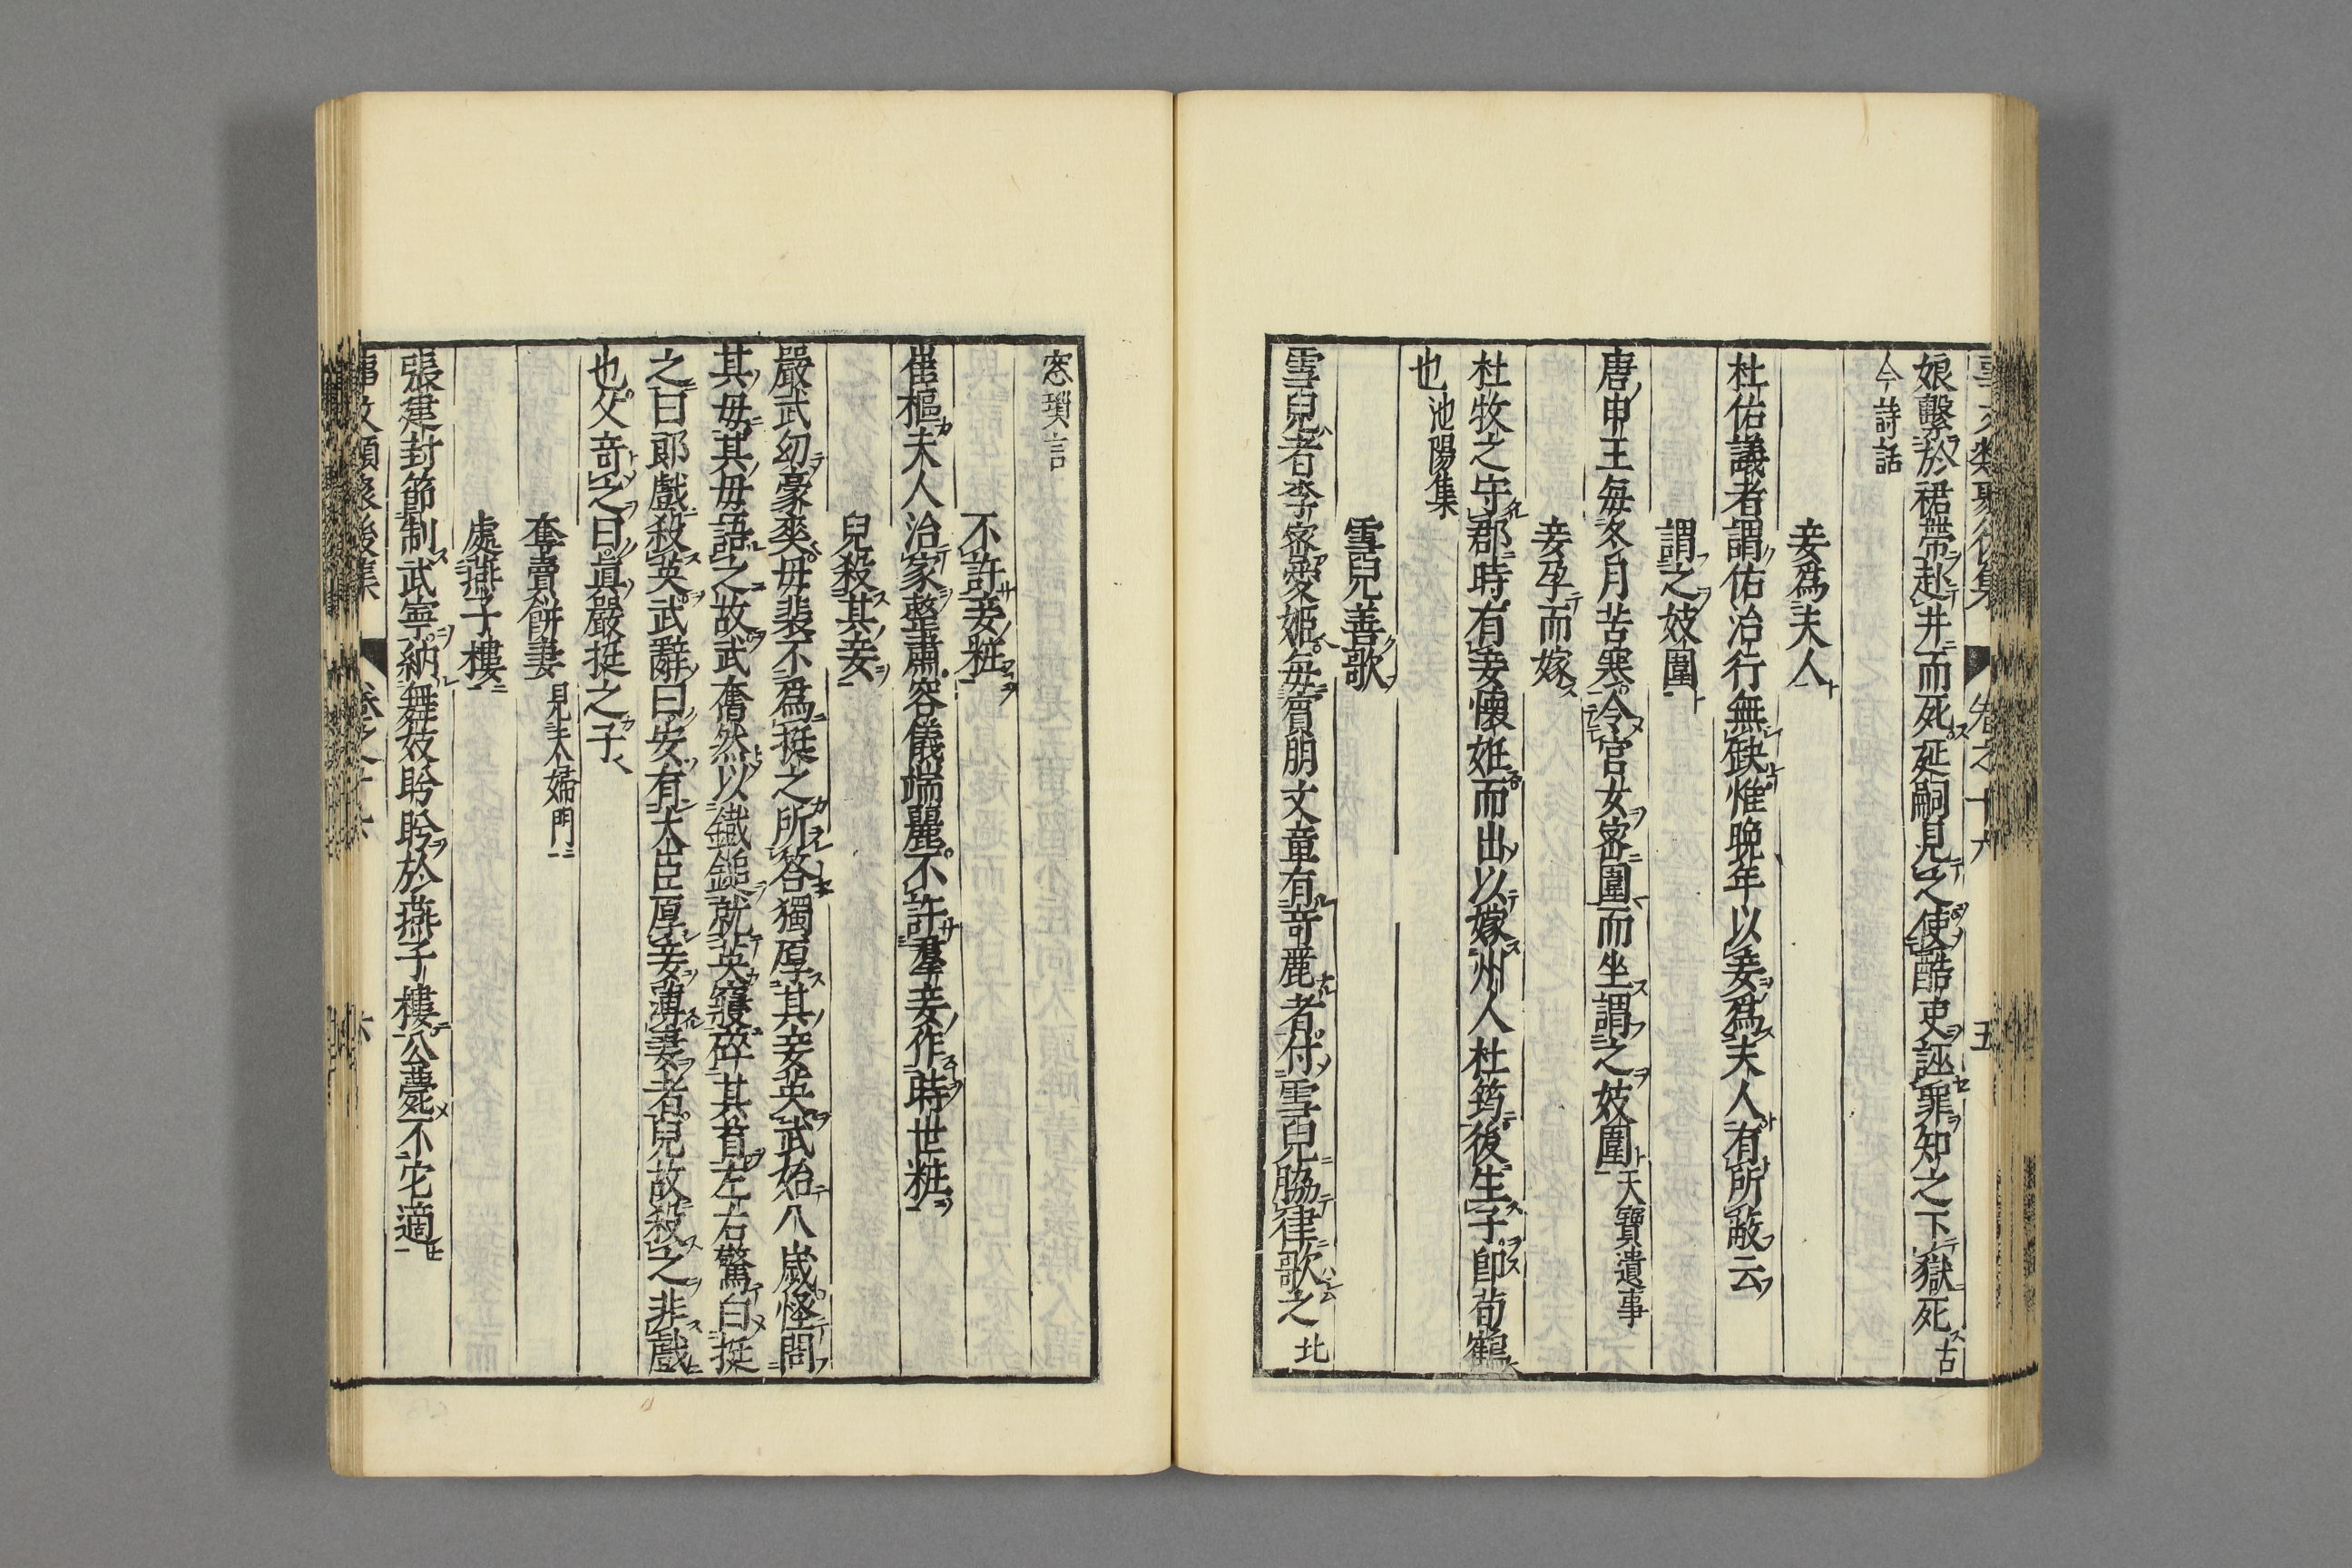 娘繫於裙帶赴井而死延嗣見之使酷吏誣罪知之下獄死古
今詩話
妾爲夫人
杜佑議者謂佑治行無缺惟晩年以妾爲夫人有所蔽云
謂之妓圍
唐申王毎冬月苦寒令官女密圍而坐謂之妓圍天寶遺事
妾孕而嫁
杜牧之守郡時有妾懷妊而出以嫁州人杜筠後生子卽荀鶴
也池陽集
雪兒善歌
雪兒者李密愛姬毎賓朋文章有竒麗者付雪兒協律歌之北
窓瑣言
不許妾粧
崔樞夫人治家整肅容儀端麗不許羣妾作時世粧
兒殺其妾
嚴武幼豪爽母裴不爲挺之所答獨厚其妾英武始八歲怪問
其母其母語之故武奮然以鐵鎚就英寢碎其首左右驚白挺
之曰郎戲殺英武辭曰安有大臣厚妾薄妻者兒故殺之非戲
也父竒之曰眞嚴挺之子
奪賣餅妻見夫婦門
處燕子樓
張建封節制武寧納舞妓盼盼於燕子樓公薨不它適
卷之十六 六